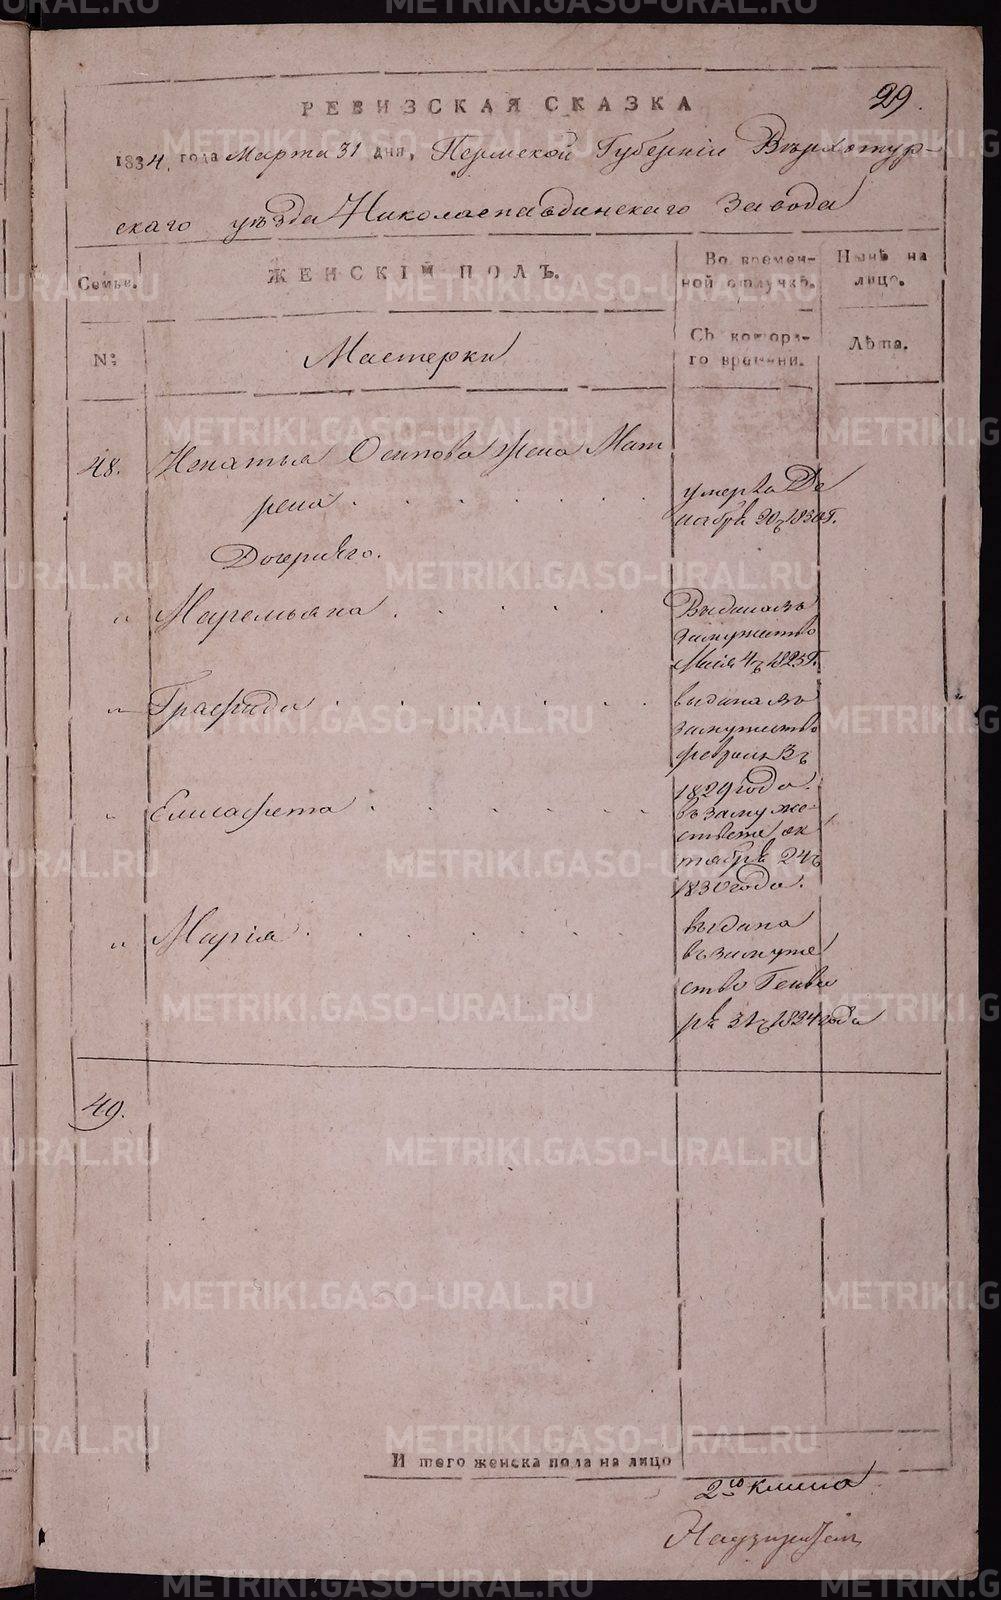 29.
РЕВИЗСКАЯ СКАЗКА
1834 года Марта 31 дня, Пермской Губернiи Верхотур-
скаго уѣзда Николаепавдинскаго завода
Семьи.
ЖЕНСКIЙ ПОЛЪ.
Во времен-
ной отлучкѣ.
Нынѣ на
лицо.
№
Мастерки
Съ котора-
го времени.
Лѣта.
48.
Игнатья Осипова жена Мат
рена
умерла Де
кабря 20ч 1830г.
Дочери его.
" Маремьяна
Выдана въ
замужество
Маiя 4ч 1825г.
" Графида
выдана въ
замужество
февраля 3ч
1829 года.
" Елисафета
въ замуже
стве же ок
тября 24ч
1830 года.
" Марiя
выдана
въ замуже
ство Генва
ря 31ч 1834 года
49.
И того женска пола на лицо
2го класса
METRIKI.GASO-URAL.RU